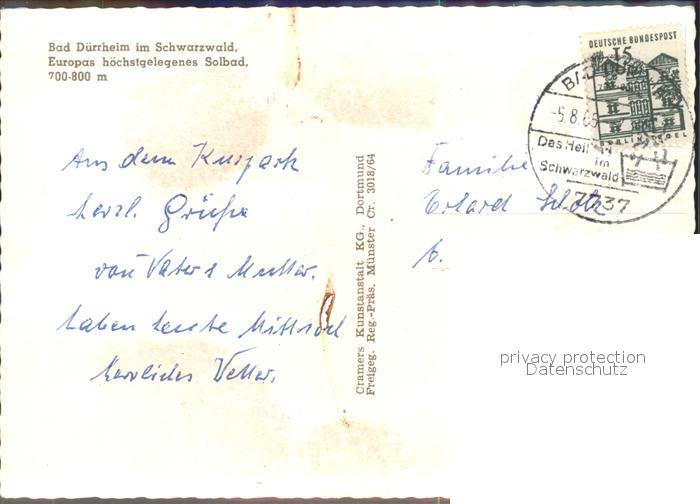 Bad Dürrheim im Schwarzwald,
Europas höchstgelegenes Solbad,
700-800 m
Aus dem Kurpark
herzl. Grüße
von Vater u Mutter.
haben heute Mittwoch
herrliches Wetter.
Cramers Kunstanstalt KG., Dortmund
Freigeg. Reg.-Präs. Münster Cr. 3018/64
DEUTSCHE BUNDESPOST
15
-5.8.65
Das Heil
im
Schwarzwald
7737
Familie
Erhard
privacy protection
Datenschutz